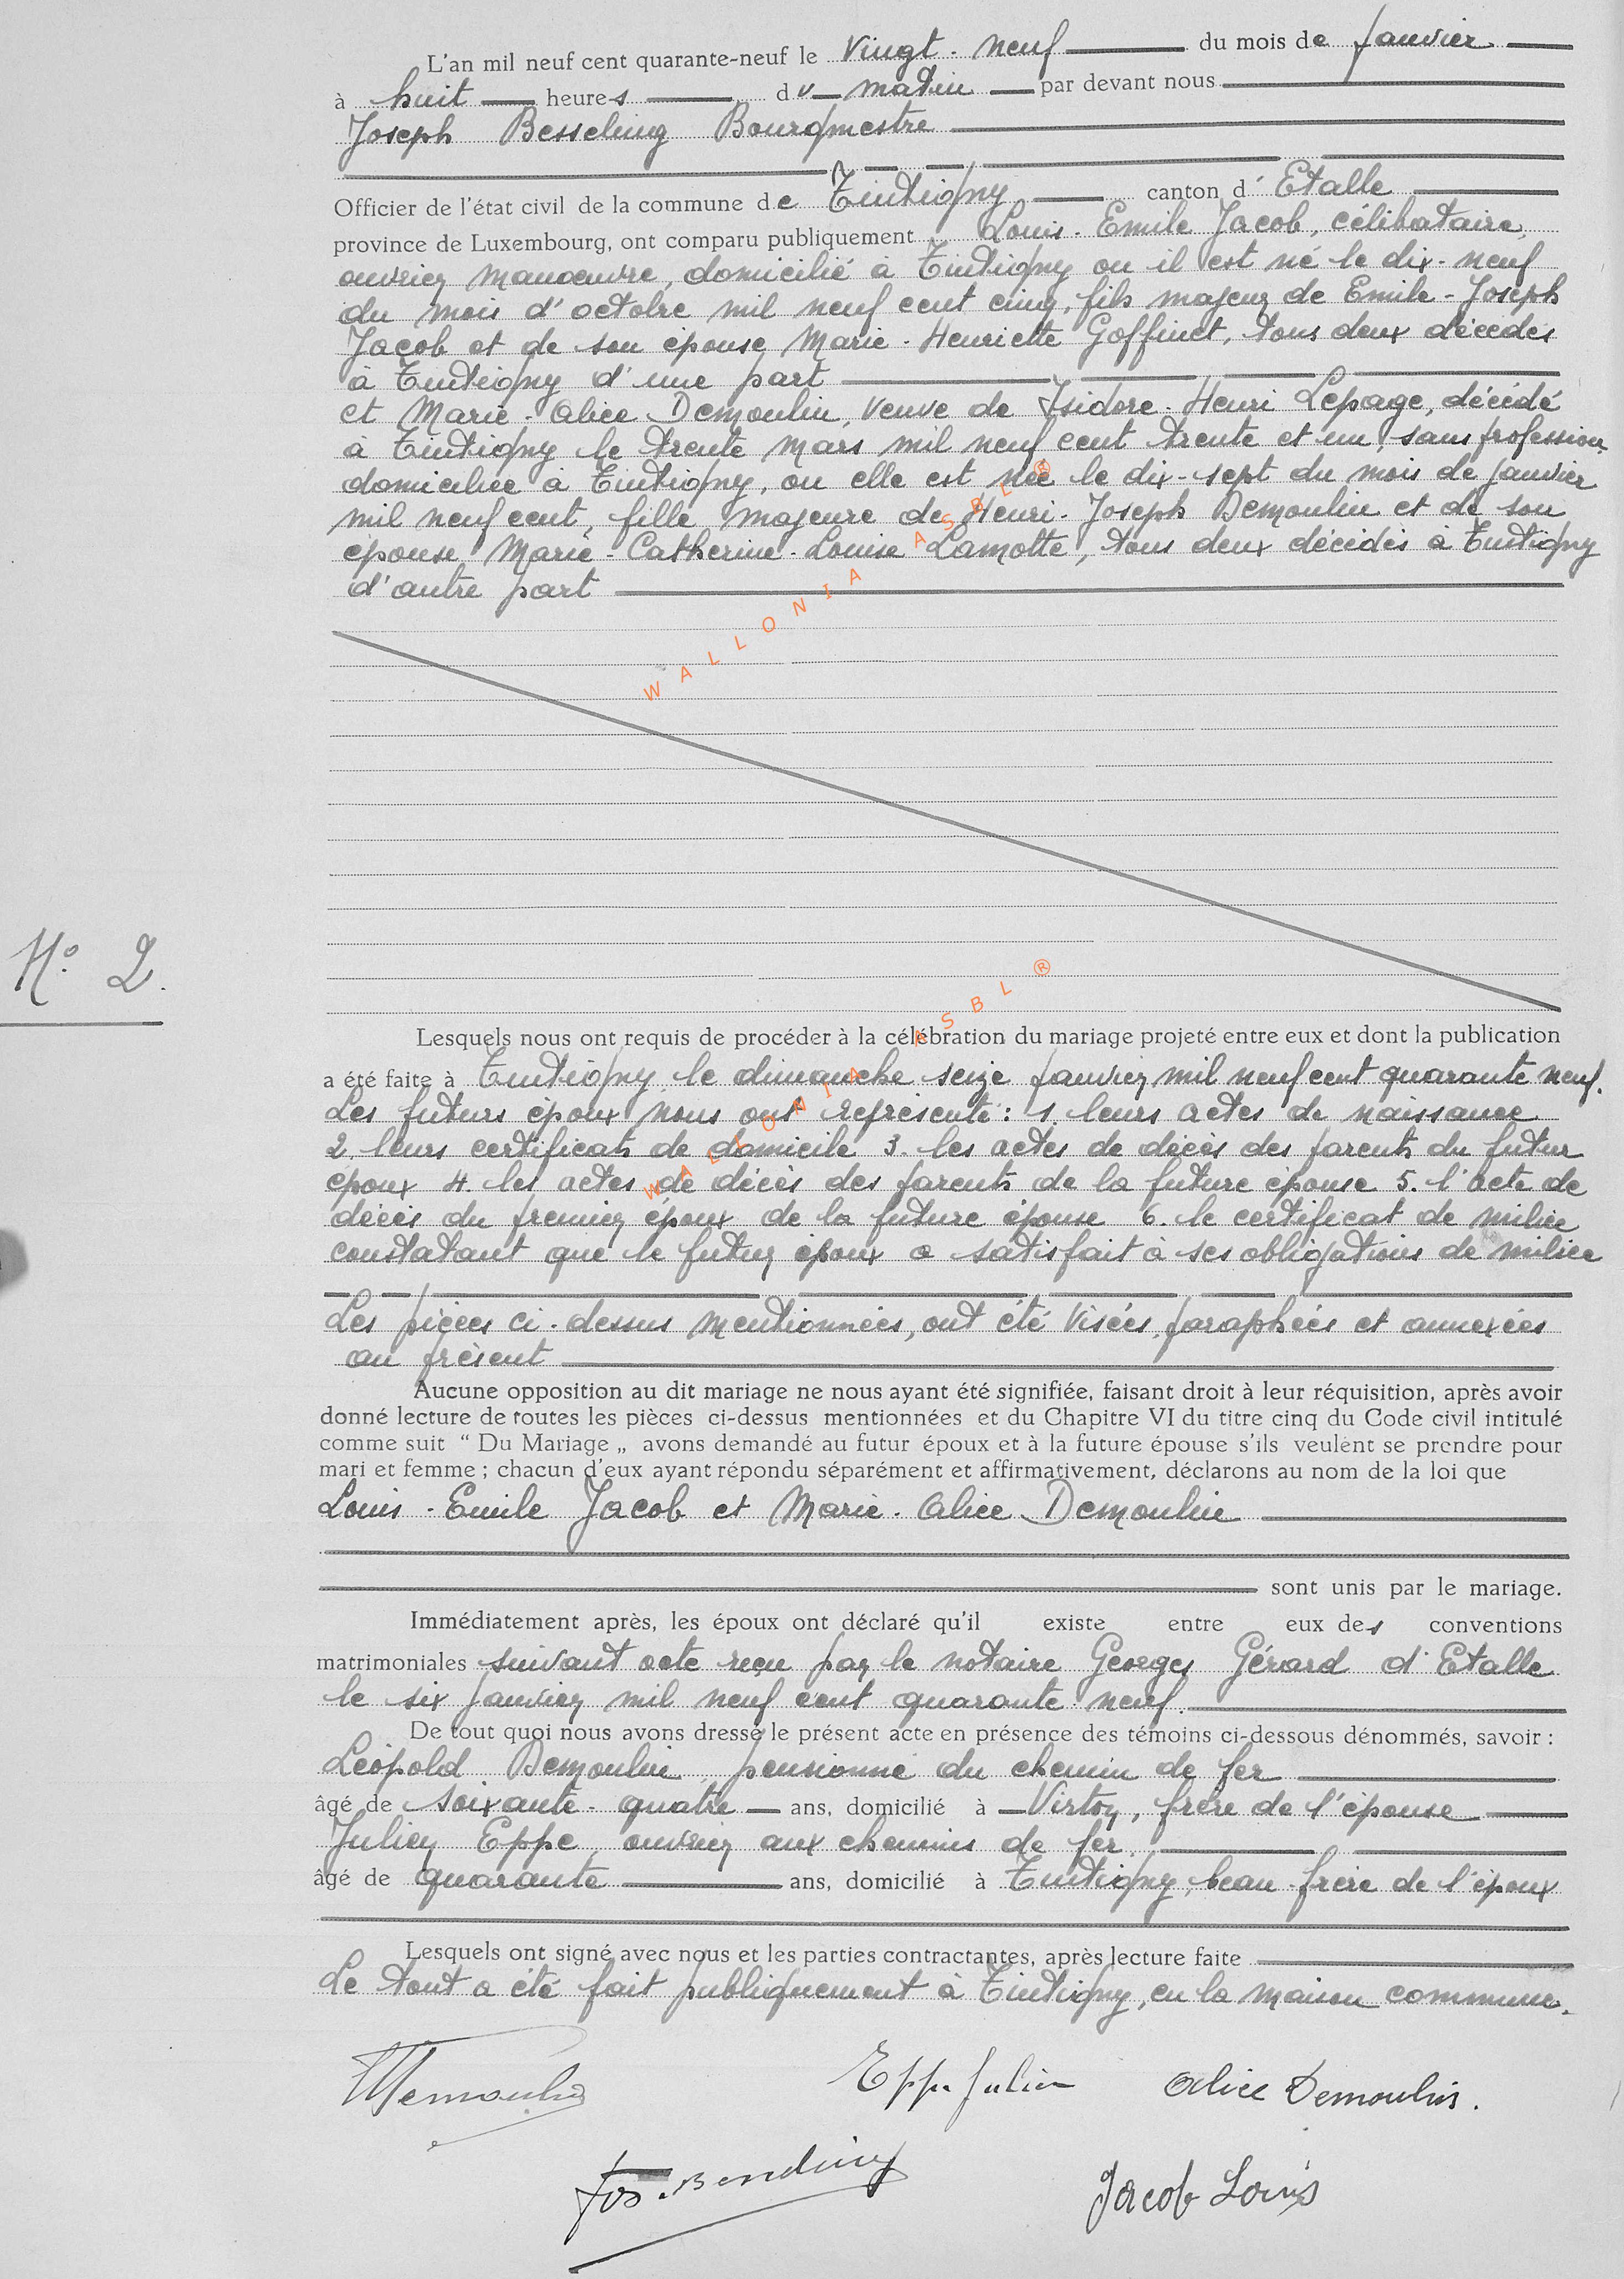 L'an mil neuf cent quarante-neuf le vingt-neuf du mois de janvier
à huit heures du matin par devant nous
Joseph Besseling Bourgmestre
Officier de l'état civil de la commune de Tintigny canton d'Etalle
province de Luxembourg, ont comparu publiquement Louis-Emile Jacob, célibataire,
ouvrier manoeuvre, domicilié à Tintigny ou il est né le dix-neuf
du mois d'octobre mil neuf cent cinq, fils majeur de Emile-Joseph
Jacob et de son épouse Marie-Henriette Goffinet, tous deux décédés
à Tintigny d'une part
et Marie-Alice Demoulin, veuve de Isidore-Henri Lepage, décédé
à Tintigny le trente mars mil neuf cent trente et un, sans profession,
domiciliée à Tintigny, ou elle est née le dix-sept du mois de janvier
mil neuf cent, fille majeure de Henri-Joseph Demoulin et de son
épouse Marie-Catherine-Louise Lamotte, tous deux décédés à Tintigny
d'autre part
WALLONIA ASBL ®
N° 2.
Lesquels nous ont requis de procéder à la célébration du mariage projeté entre eux et dont la publication
a été faite à Tintigny le dimanche seize janvier mil neuf cent quarante neuf.
Les futurs époux nous ont représenté : 1 leurs actes de naissance
2. leurs certificats de domicile 3. les actes de décès des parents du futur
époux 4. les actes de décès des parents de la future épouse 5. l'acte de
décès du premier époux de la future épouse 6. le certificat de milice
constatant que le futur époux a satisfait à ses obligations de milice
WALLONIA ASBL ®
Les pièces ci-dessus mentionnées, ont été visées, paraphées et annexées
au présent
Aucune opposition au dit mariage ne nous ayant été signifiée, faisant droit à leur réquisition, après avoir
donné lecture de toutes les pièces ci-dessus mentionnées et du Chapitre VI du titre cinq du Code civil intitulé
comme suit “ Du Mariage „ avons demandé au futur époux et à la future épouse s'ils veulent se prendre pour
mari et femme ; chacun d'eux ayant répondu séparément et affirmativement, déclarons au nom de la loi que
Louis-Emile Jacob et Marie-Alice Demoulin
sont unis par le mariage.
Immédiatement après, les époux ont déclaré qu'il existe entre eux des conventions
matrimoniales suivant acte reçu par le notaire Georges Gérard d'Etalle
le six janvier mil neuf cent quarante neuf.
De tout quoi nous avons dressé le présent acte en présence des témoins ci-dessous dénommés, savoir :
Léopold Demoulin, pensionné du chemin de fer
âgé de soixante-quatre ans, domicilié à Virton, frère de l'épouse
Julien Eppe, ouvrier aux chemins de fer,
âgé de quarante ans, domicilié à Tintigny, beau-frère de l'époux
Lesquels ont signé avec nous et les parties contractantes, après lecture faite
Le tout a été fait publiquement à Tintigny, en la maison commune.
Demoulin Eppe Julien Alice Demoulin.
Jos. Jacob Louis